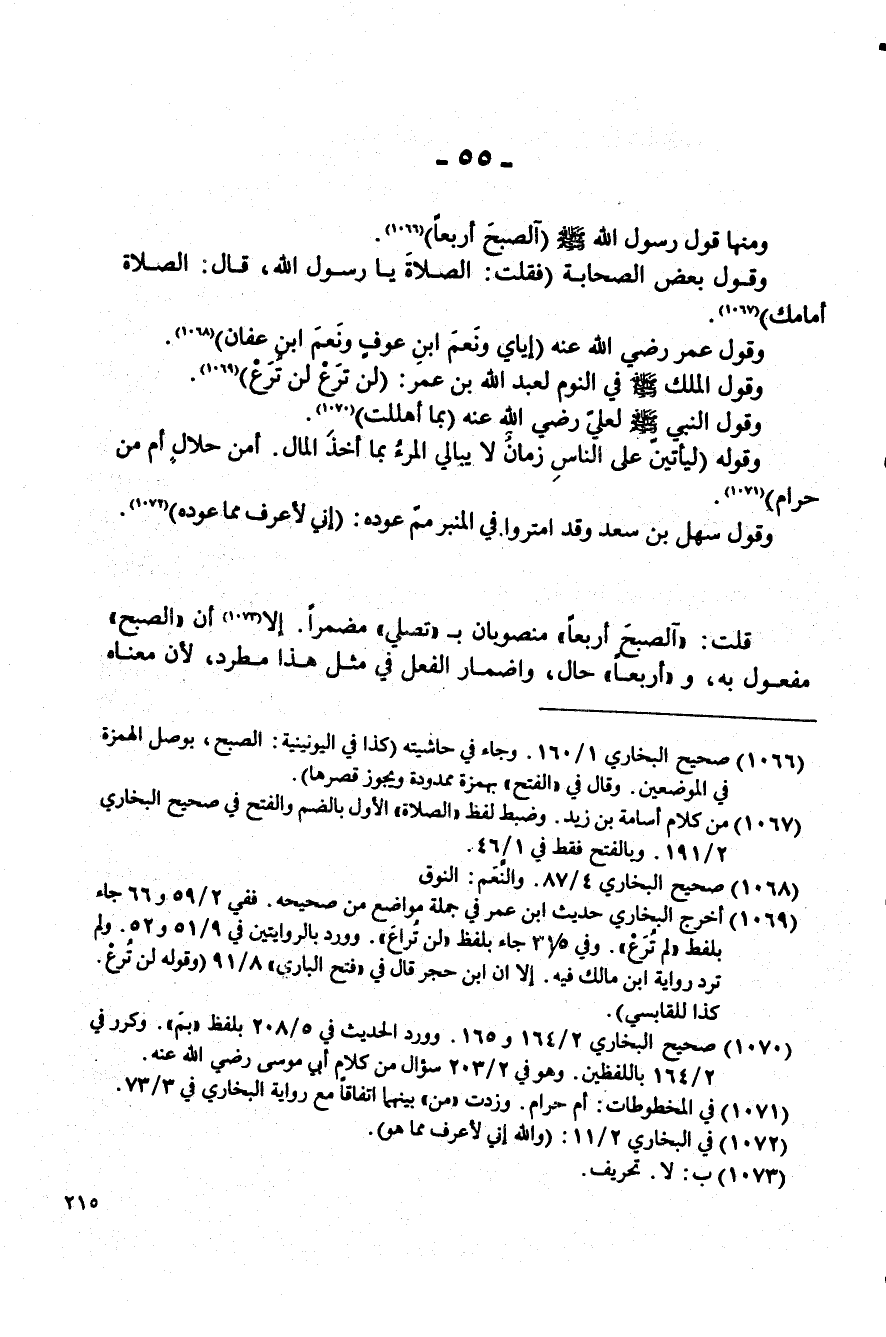 ـ ٥٥ ـ
ومنها قول رسول الله ﷺ (آلصبحَ أربعاً)(١٠٦٦).
وقول بعض الصحابة (فقلت: الصلاةَ يا رسول الله، قال: الصلاة
أمامك)(١٠٦٧).
وقول عمر رضي الله عنه (إياي ونَعمَ ابنِ عوفٍ ونَعمَ ابنِ عفان)(١٠٦٨).
وقول الملك ﷺ في النوم لعبد الله بن عمر: (لن ترَعْ لن تُرَعْ)(١٠٦٩).
وقول النبي ﷺ لعليّ رضي الله عنه (بما أهللت)(١٠٧٠).
وقوله (ليأتينّ على الناسِ زمانٌ لا يبالي المرءُ بما أخذَ المال. أمن حلالٍ أم من
حرام)(١٠٧١).
وقول سهل بن سعد وقد امتروا في المنبر ممّ عوده: (إني لأعرف مما عوده)(١٠٧٢).
قلت: «آلصبحَ أربعاً» منصوبان بـ «تصلي» مضمراً. إلا(١٠٧٣) أن «الصبح»
مفعول به، و «أربعاً» حال، واضمار الفعل في مثل هذا مطرد، لأن معناه
(١٠٦٦) صحيح البخاري ١/ ١٦٠. وجاء في حاشيته (كذا في اليونينية: الصبح، بوصل الهمزة
في الموضعين. وقال في «الفتح» بهمزة ممدودة ويجوز قصرها).
(١٠٦٧) من كلام أسامة بن زيد. وضبط لفظ «الصلاة» الأول بالضم والفتح في صحيح البخاري
٢/ ١٩١. وبالفتح فقط في ١/ ٤٦.
(١٠٦٨) صحيح البخاري ٤/ ٨٧. والنَّعَم: النوق
(١٠٦٩) أخرج البخاري حديث ابن عمر في جملة مواضع من صحيحه. ففي ٢/ ٥٩ و ٦٦ جاء
بلفظ «لم تُرَعْ». وفي ٥/ ٣١ جاء بلفظ «لن تُراعَ». وورد بالروايتين في ٩/ ٥١ و ٥٢. ولم
ترد رواية ابن مالك فيه. إلا ان ابن حجر قال في «فتح الباري» ٨/ ٩١ (وقوله لن تُرعْ.
كذا للقابسي).
(١٠٧٠) صحيح البخاري ٢/ ١٦٤ و ١٦٥. وورد الحديث في ٥/ ٢٠٨ بلفظ «بمَ». وكرر في
٢/ ١٦٤ باللفظين. وهو في ٢/ ٢٠٣ سؤال من كلام أبي موسى رضي الله عنه.
(١٠٧١) في المخطوطات: أم حرام. وزدت «من» بينهما اتفاقاً مع رواية البخاري في ٣/ ٧٣.
(١٠٧٢) في البخاري ٢/ ١١: (والله إني لأعرف مما هو).
(١٠٧٣) ب: لا. تحريف.
٢١٥